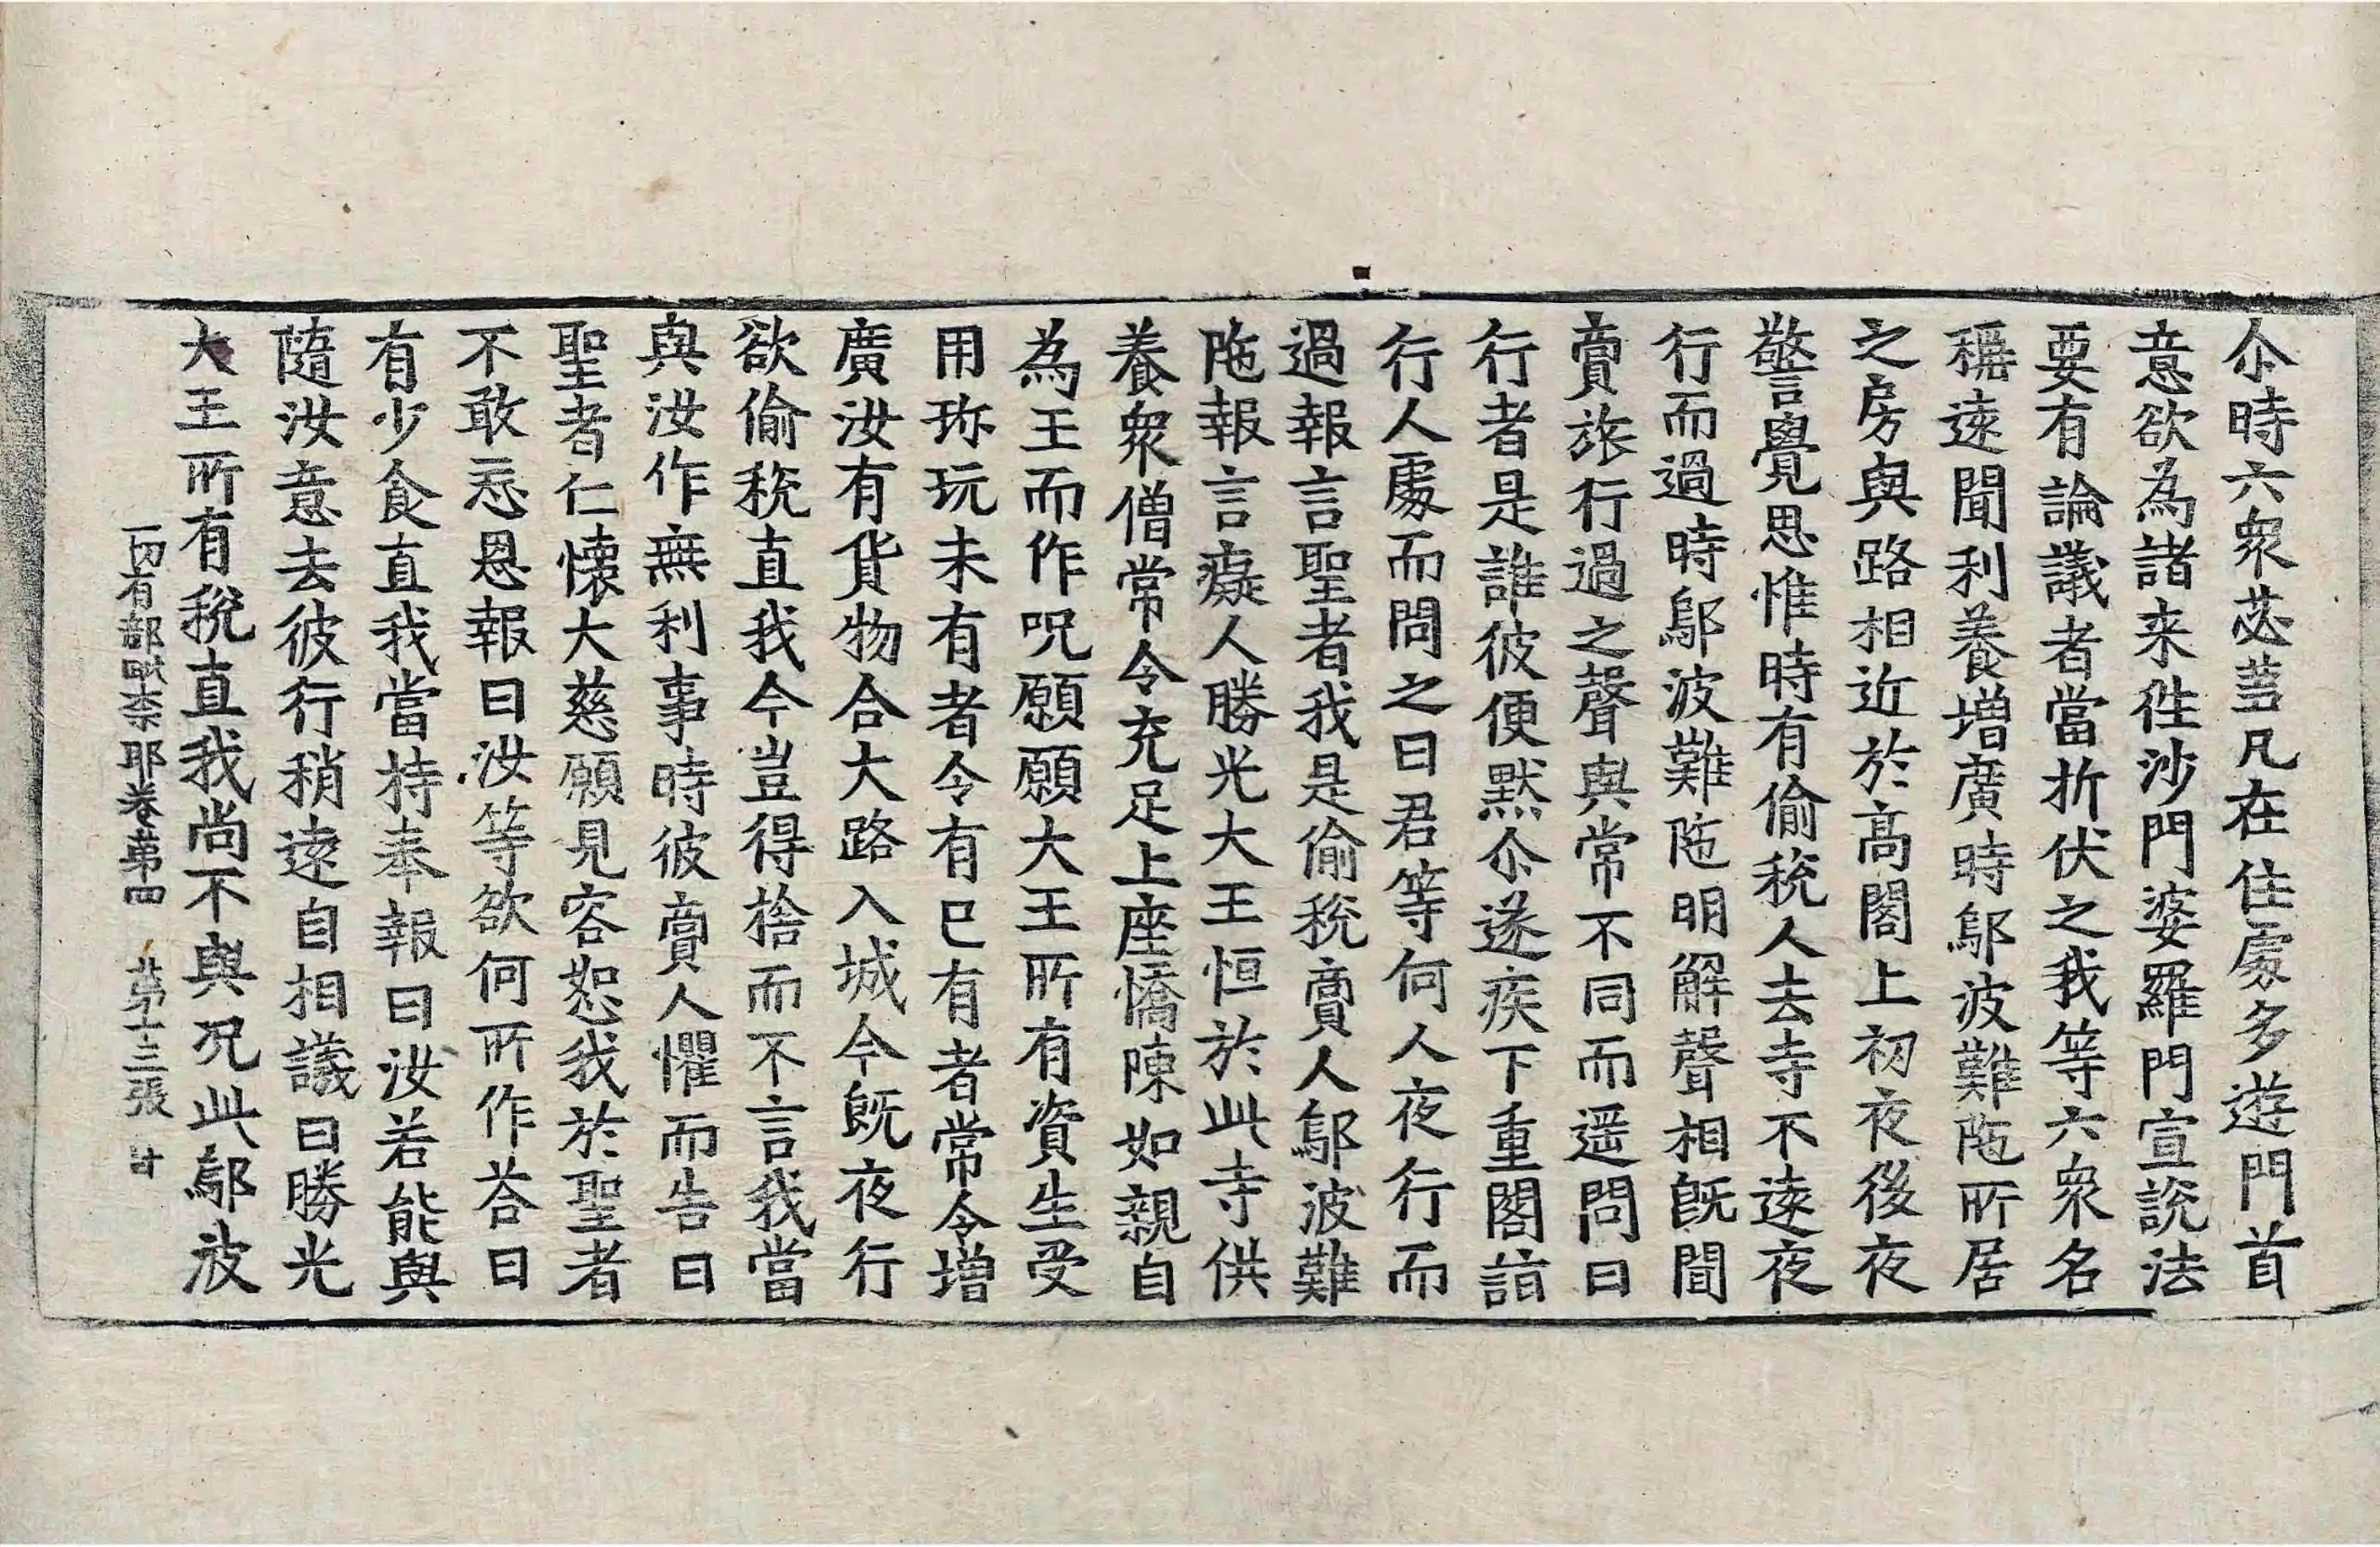 尒時六衆苾芻凡在住處多遊門首
意欲為諸来徃沙門婆羅門宣說法
要有論議者當折伏之我等六衆名
稱遠聞利養增廣時鄔波難陁所居
之房與路相近於高閣上初夜後夜
警覺思惟時有偷稅人去寺不遠夜
行而過時鄔波難陁明解聲相旣聞
賣旅行過之聲與常不同而遥問曰
行者是誰彼便默尒遂疾下重閣詣
行人處而問之曰君等何人夜行而
過報言聖者我是偷稅賣人鄔波難
陁報言癡人勝光大王恒於此寺供
養衆僧常令充足上座憍陳如親自
為王而作呪願願大王所有資生受
用珎玩未有者令有巳有者常令增
廣汝有貨物合大路入城今旣夜行
欲偷稅直我今豈得捨而不言我當
與汝作無利事時彼賣人懼而告曰
聖者仁懷大慈願見容恕我於聖者
不敢忘恩報曰汝等欲何所作荅曰
有少食直我當持奉報曰汝若能與
隨汝意去彼行稍遠自相議曰勝光
大王所有稅直我尚不與况此鄔波
一切有部毗柰耶卷第四 第十三張 甘